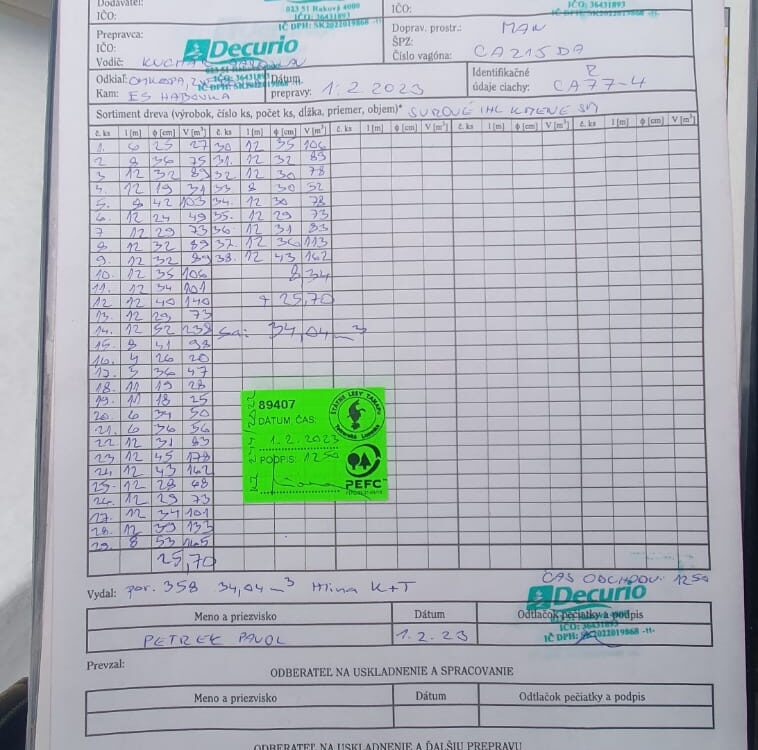 Dodávateľ:
IČO:
023 51 Raková 4000
IČO: 36431893
IČ DPH: SK2022019868 -11-
IČO:
IČO: 36431893
IČ DPH: SK2022019868 -11-
Prepravca:
IČO:
Decurio
Vodič:
Doprav. prostr.: MAN
ŠPZ:
Číslo vagóna: CA215DA
Odkiaľ:
Kam: ES HABOVKA
Dátum
prepravy: 1.2.2023
Identifikačné
údaje ciachy: CA77-4
Sortiment dreva (výrobok, číslo ks, počet ks, dĺžka, priemer, objem)* SUROVÉ IHL KMENE
č. ks l [m] φ [cm] V [m³] č. ks l [m] φ [cm] V [m³] č. ks l [m] φ [cm] V [m³] č. ks l [m] φ [cm] V [m³] č. ks l [m] φ [cm] V [m³]
1. 6 25 27 30 12 35 106
2 8 36 75 31. 12 32 89
3 12 32 89 32. 12 30 78
4. 12 19 31 33 8 30 52
5. 8 42 103 34. 12 30 78
6. 12 24 49 35. 12 29 73
7 12 29 73 36. 12 31 83
8 12 32 89 37. 12 36 113
9. 12 32 89 38. 12 43 162
10. 12 35 106 8 34
11. 12 34 101
12 12 40 140 + 25,70
13. 12 29 73
14. 12 52 238 Sa: 34,04 m³
15. 8 41 98
16. 4 26 20
17. 5 36 47
18. 11 19 28
19. 11 18 25
20. 6 34 50
21. 6 36 56
22 12 31 83
23 12 45 178
24. 12 43 162
25. 12 28 68
26. 12 29 73
27. 12 34 101
28. 12 39 133
29. 8 53 165
25,70
89407
DÁTUM, ČAS:
1.2.2023
PODPIS: 1250
ŠTÁTNE LESY TANAPu
Tatranská Lomnica
PEFC
Vydal: por. 358 34,04 m³ Hlina K+T
ČAS ODCHODU: 1250
Decurio
Meno a priezvisko Dátum Odtlačok pečiatky a podpis
IČO: 36431893
IČ DPH: SK2022019868 -11-
PETREK PAVOL 1.2.23
Prevzal:
ODBERATEĽ NA USKLADNENIE A SPRACOVANIE
Meno a priezvisko Dátum Odtlačok pečiatky a podpis
ODBERATEĽ NA USKLADNENIE A ĎALŠIU PREPRAVU